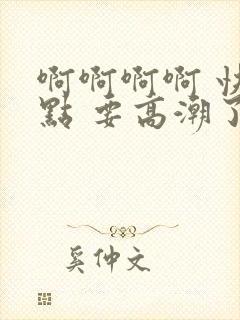 啊啊啊啊 快
點 要高潮了
奚仲文